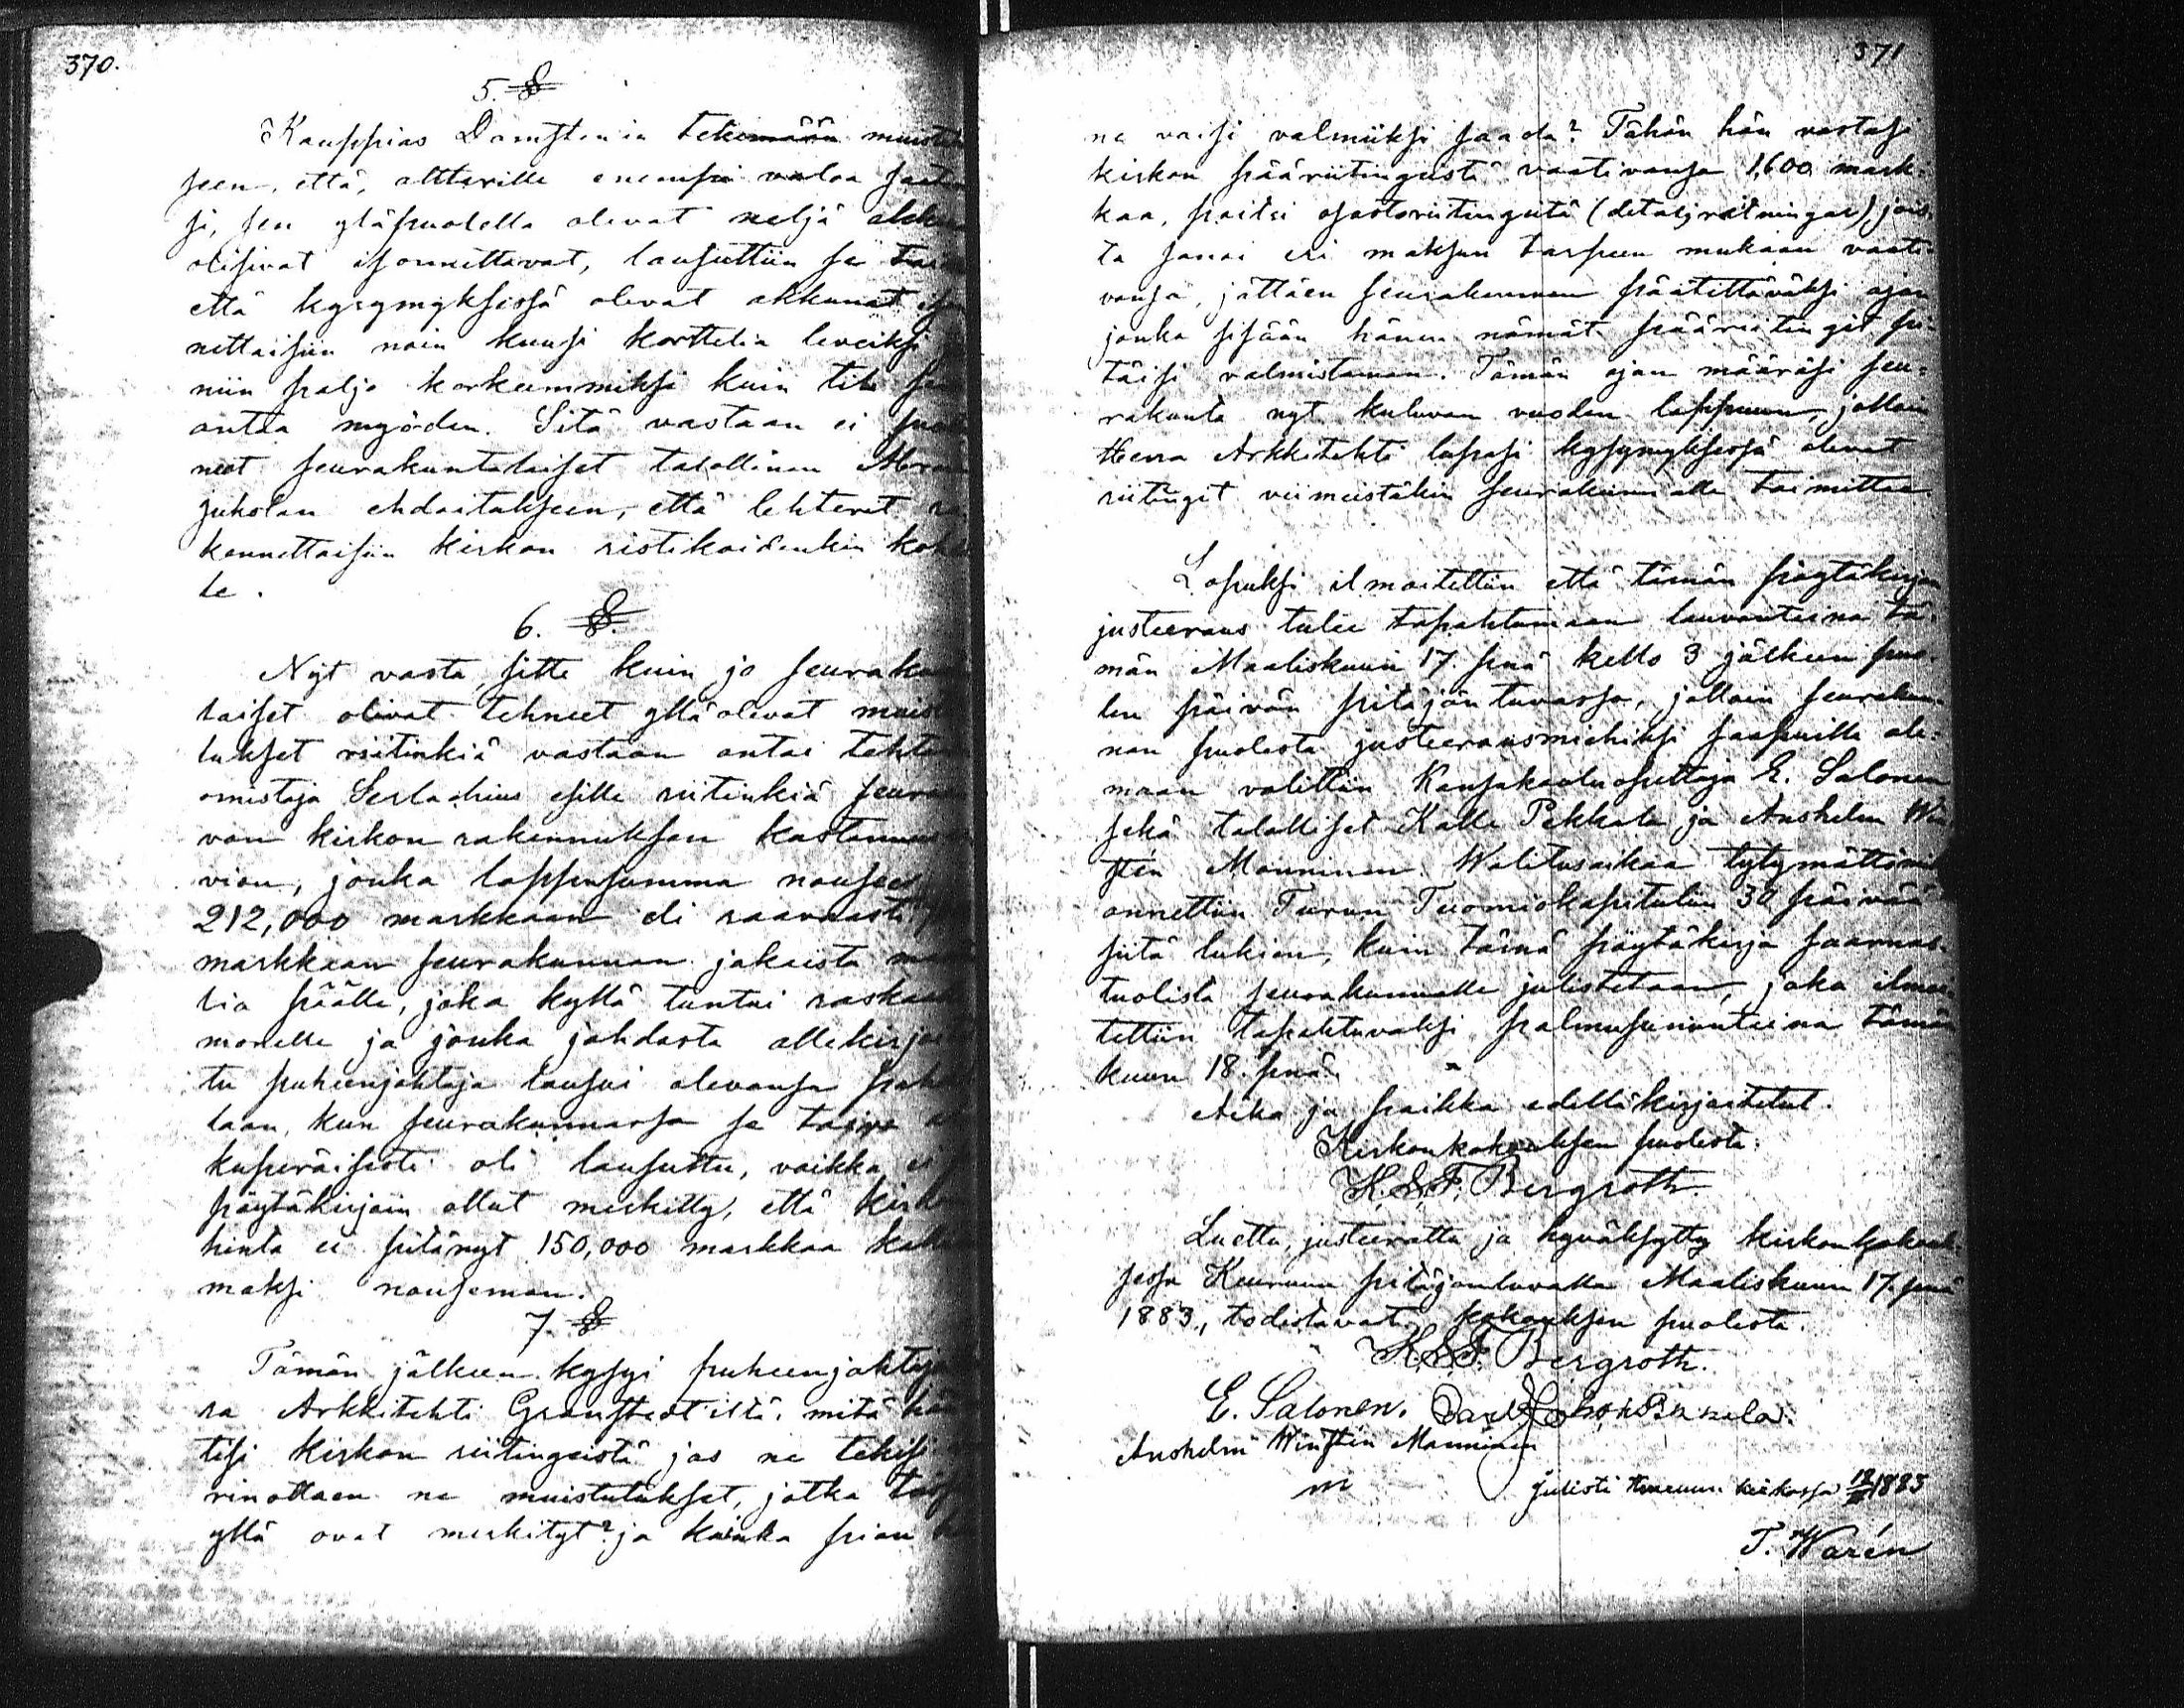 370.
5. §
Kauppias Damstenin tekemään muistu
seen, että, alttarille enempi valoa saata
si, sen yläpuolella olevat neljä akku
olisivat isonnettavat, lausuttiin se
että kysymyksessä olevat akkunat
nettaisiin noin kuusi korttelia leveiksi
niin paljo korkeammiksi kuin tila
antaa myöden. Sitä vastaan ei
neet seurakuntalaiset talollinen
Juholan ehdoitukseen, että lehterit
kennettaisiin kirkon ristikoidenkin koh
le.
6. §.
Nyt vasta, sitte kuin jo seuraku
laiset olivat tehneet yllä olevat muis
tukset riitinkiä vastaan antoi teht
omistaja Serlachius esille riitinkiä seura
van kirkon rakennuksen kustannus
vion, jonka loppusumma nousee
212,000 markkaan eli raamasti
markkaan seurakunnan jokaista
lia päälle, joka kyllä tuntui raskaa
monelle ja jonka johdosta allekirjoi
tu puheenjohtaja lausui olevansa pah
laan, kun seurakunnassa se toivo
kuperäisesti oli lausuttu, vaikka ei
pöytäkirjoin ollut merkitty, että kirko
hinta ei pitänyt 150,000 markkaa kall
maksi nouseman.
7. §
Tämän jälkeen kysyi puheenjohtaja
ra Arkkitehti Granstedt'iltä, mitä hän
tisi kirkon riitingeistä jos ne tekisi
rinottaen ne muistutukset, jotka
yllä ovat merkityt? ja kuinka pian
371
ne voisi valmiiksi saada? Tähän hän vastasi
kirkon pääriitingeistä vaativansa 1,600 mark-
kaa, paitsi osastoriitingeitä (detaljritningar), jois-
ta sanoi eri maksun tarpeen mukaan vaati-
vansa, jättäen seurakunnan päätettäväksi ajan
jonka sisään hänen nämät pääriitingit pi-
täisi valmistaman. Tämän ajan määräsi seu-
rakunta nyt kuluvan vuoden loppuun, jolloin
Herra Arkkitehti lupasi kysymyksessä olevat
riitingit viimeistäkin seurakunnalle toimittaa.
Lopuksi ilmoitettiin että tämän pöytäkirjan
justeeraus tulee tapahtumaan lauvantaina tä-
män Maaliskuun 17. pnä kello 3 jälkeen puo-
len päivän pitäjän tuvassa, jolloin seurakun-
nan puolesta justeerausmiehiksi saapuville ole-
maan valittiin Kansakoulunopettaja E. Salonen
sekä talolliset Kalle Pekkala ja Anshelm Win
stén Manninen. Walitusaikaa tytymättömi
annettiin Turun Tuomiokapituliin 30 päivää
siitä lukien, kuin tämä pöytäkirja saarnas-
tuolista seurakunnalle julistetaan, joka ilmoi-
tettiin tapahtuvaksi palmusunnuntaina tämän
kuun 18. pnä.
Aika ja paikka edelläkirjoitetut.
Kirkonkokouksen puolesta:
K. & F. Bergroth.
Luettu, justeerattu ja hyväksytty kirkonkokouk-
sessa Keuruun pitäjäntuvalla Maaliskuun 17. pnä
1883, todistavat kokouksen puolesta.
K. & F. Bergroth.
E. Salonen.
Anshelm Winstén Manninen
Julisti Keuruun kirkossa 18/III 1883
T. Warén